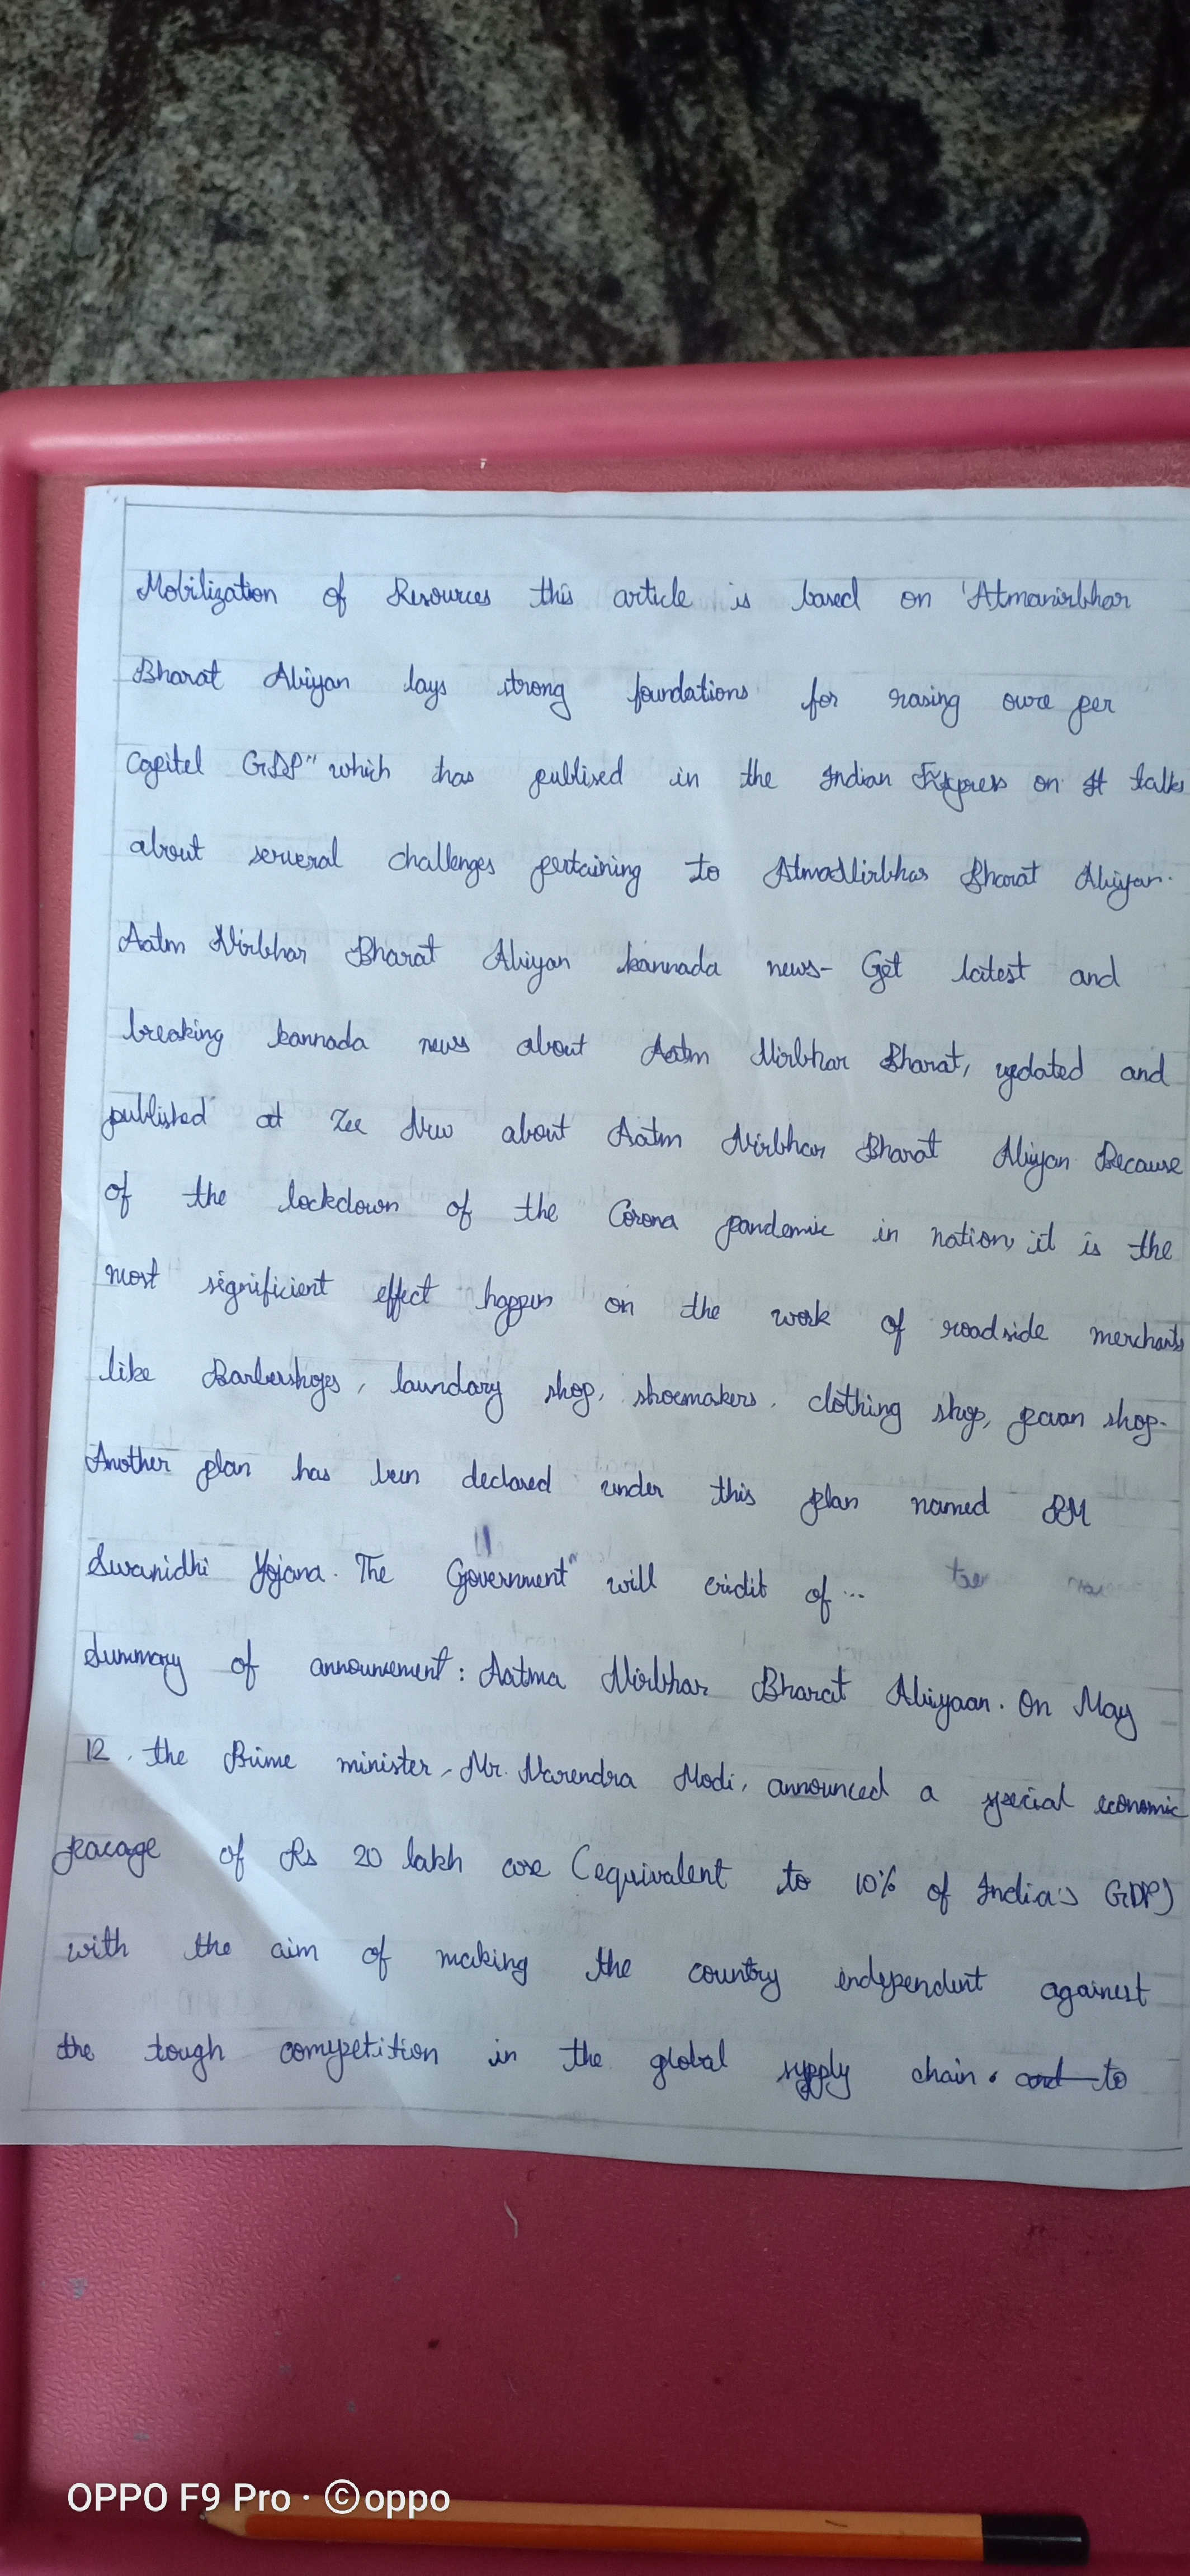 Mobilization of Resources this article is based on 'Atmanirbhar
Bharat Abiyan lays strong foundations for rasing owre per
Capitel GDP" which has publised in the Indian Express on It talks
about serveral challenges pertaining to AtmaNirbhar Bharat Abiyan.
Aatm Nirbhar Bharat Abiyan kannada news- Get latest and
breaking kannada news about Aatm Nirbhar Bharat, updated and
published at Zee New about Aatm Nirbhar Bharat Abiyan Because
of the lockdown of the Corona pandemic in nation, it is the
most significient effect happen on the work of roadside merchants
like Barbershops, laundary shop, shoemakers, clothing shop, paan shop.
Another plan has been declared under this plan named PM
Swanidhi Yojana. The Government" will cridit of ...
Summary of announcement: Aatma Nirbhar Bharat Abiyaan. On May
12, the Prime minister, Mr. Narendra Modi, announced a special economic
pacage of Rs 20 lakh core (equivalent to 10% of India's GDP)
with the aim of making the country independent against
the tough competition in the global supply chain. and to
OPPO F9 Pro · ©oppo